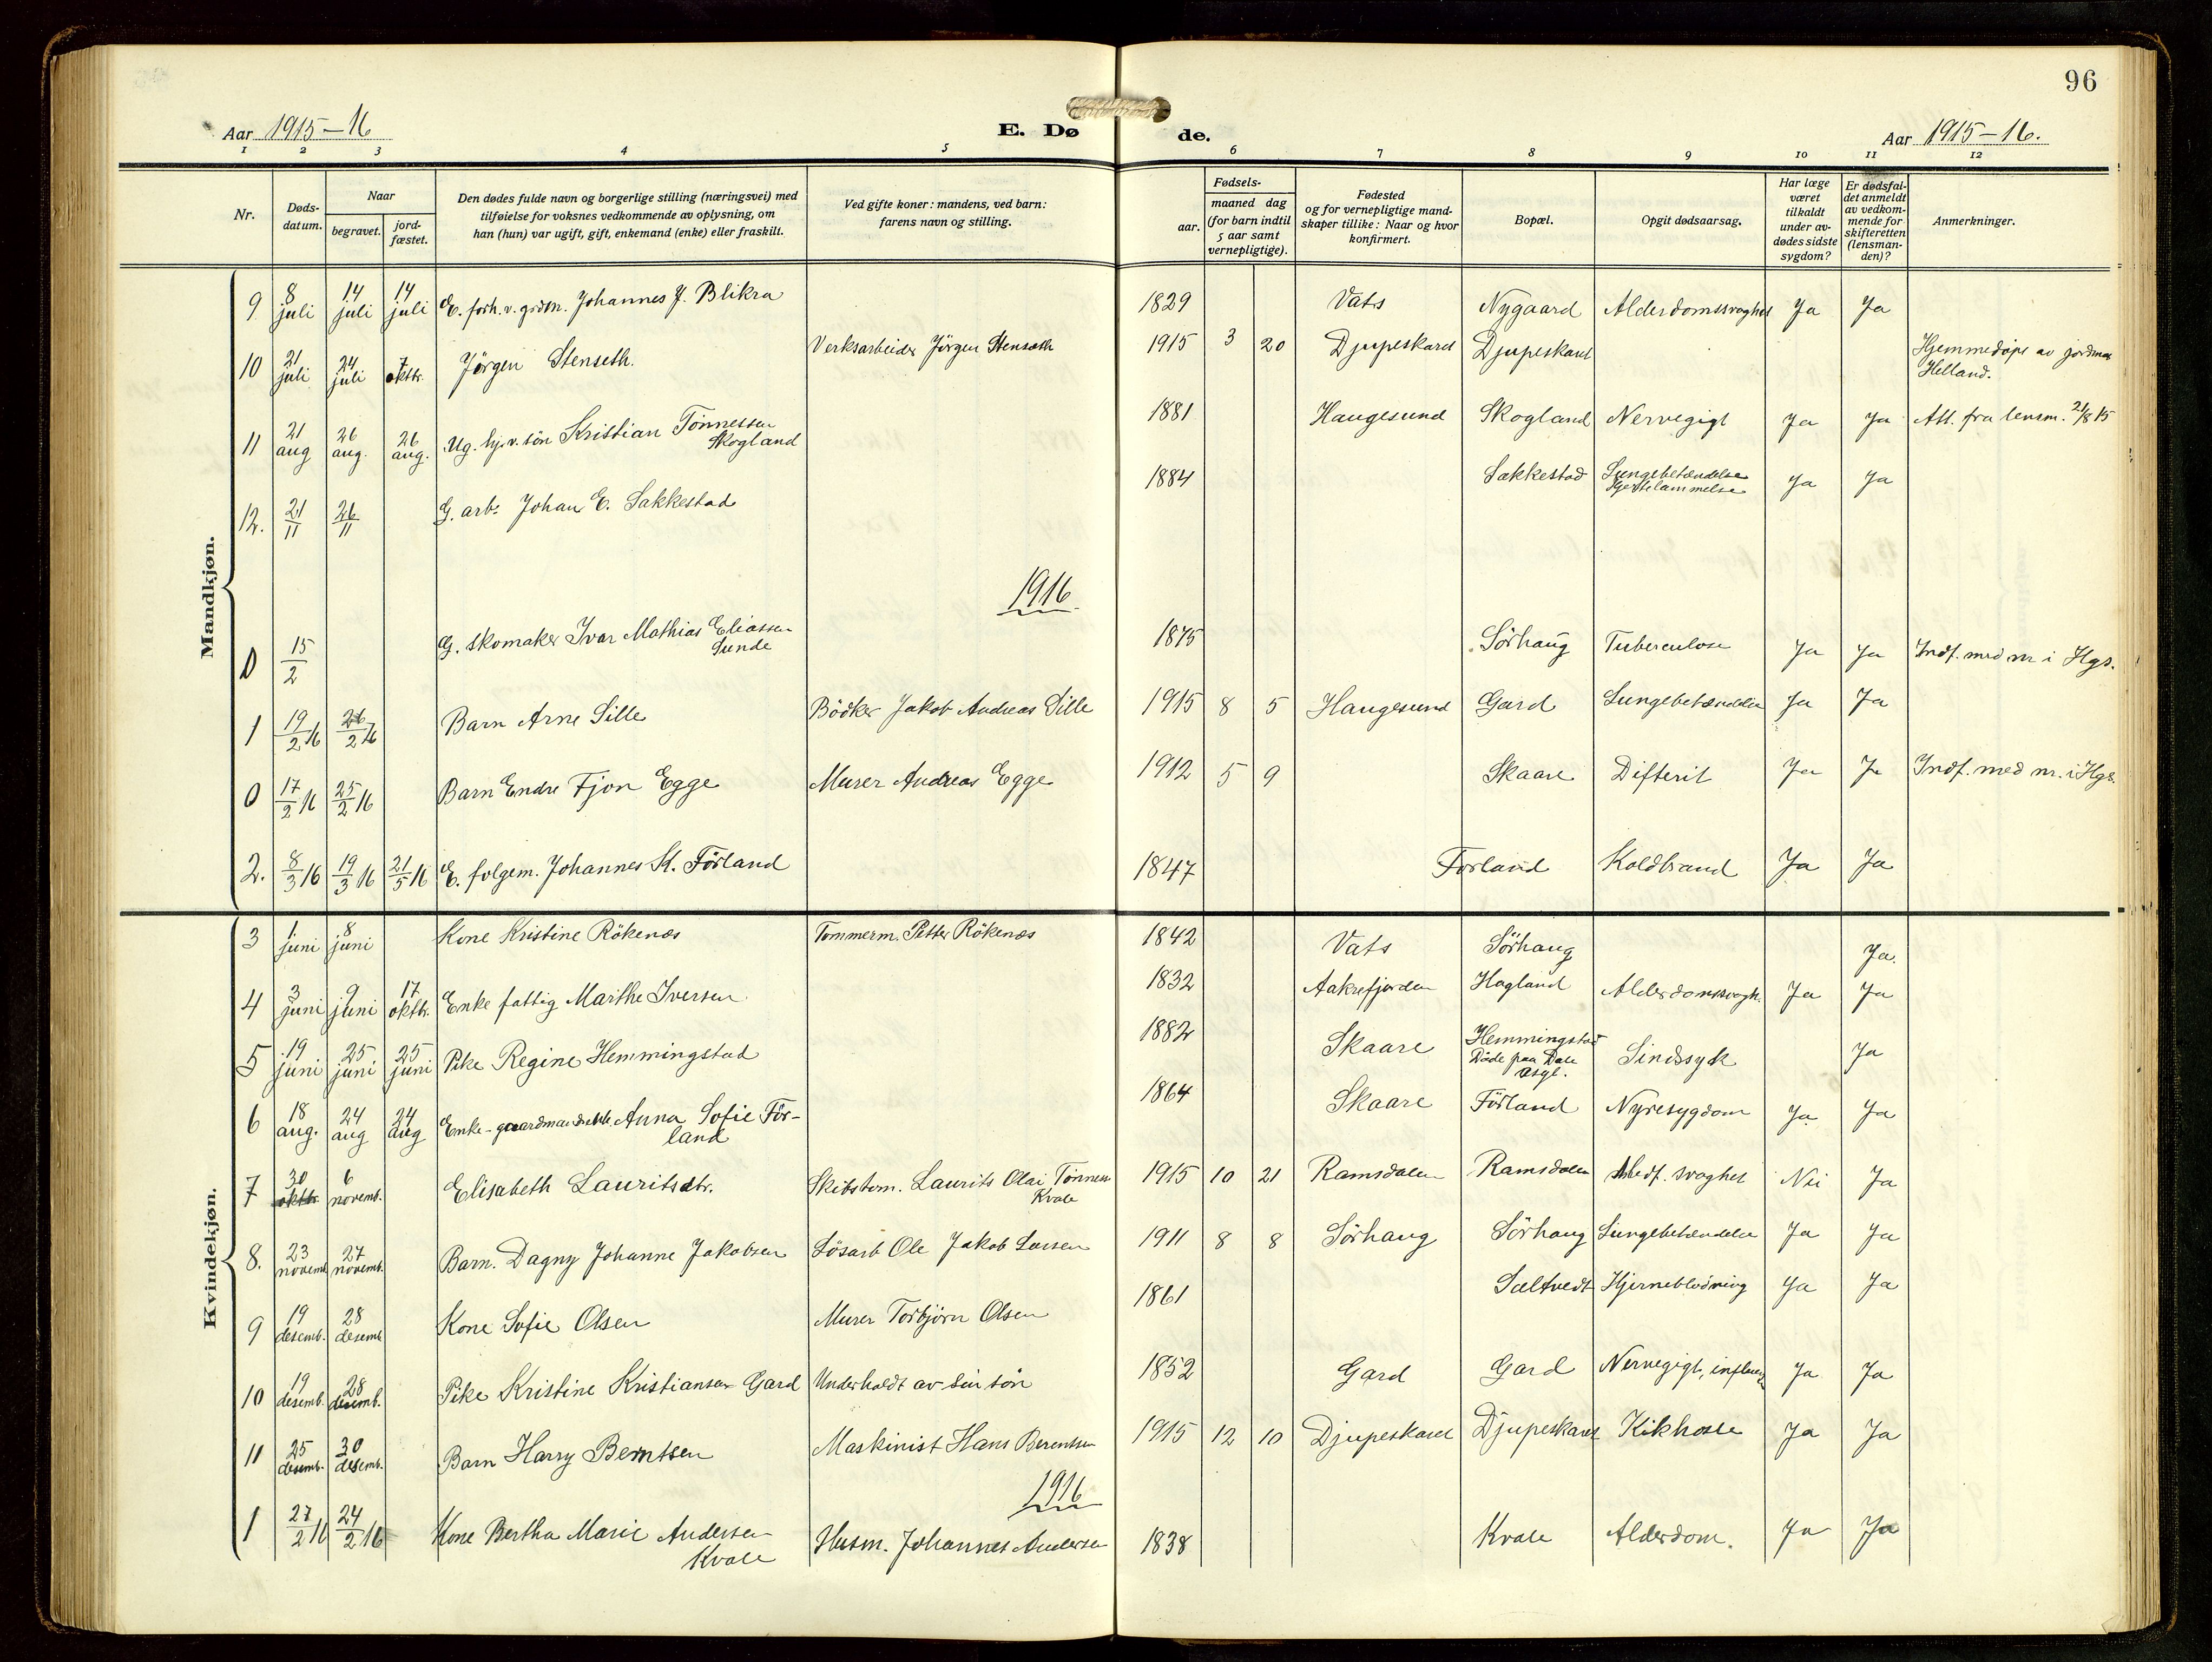 96
Aar 1915-16
E. Dø de.
Aar 1915-16.
1 2 3 4 5 6 7 8 9 10 11 12
Nr.
Døds-
datum.
Naar
begravet.
jord-
fæstet.
Den dødes fulde navn og borgerlige stilling (næringsvei) med
tilføielse for voksnes vedkommende av oplysning, om
han (hun) var ugift, gift, enkemand (enke) eller fraskilt.
Ved gifte koner: mandens, ved barn:
farens navn og stilling.
Fødsels-
aar.
maaned dag
(for barn indtil
5 aar samt
vernepligtige).
Fødested
og for vernepligtige mand-
skaper tillike: Naar og hvor
konfirmert.
Bopæl.
Opgit dødsaarsag.
Har læge
været
tilkaldt
under av-
dødes sidste
sygdom?
Er dødsfal-
det anmeldt
av vedkom-
mende for
skifteretten
(lensman-
den)?
Anmerkninger.
Mandkjøn.
9 8 juli 14 juli 14 juli E. forh. v. grdm. Johannes J. Blikra 1829 Vats Nygaard Alderdomssvaghet Ja Ja
10 21 juli 24 juli 7 oktbr. Jörgen Stenseth. Verksarbeider Jörgen Stenseth 1915 3 20 Djupeskard Djupeskard Hjemmedöpt av jordmor
Helland.
11 21 aug 26 aug. 26 aug. Ug. hj.v. sön Kristian Tönnessen
Skogland 1881 Haugesund Skogland Nervegigt Ja Ja Att. fra lensm. 21/8 15
12. 21/11 26/11 G. arb. Johan E. Sakkestad 1884 Sakkestad Lungebetændelse
Hjertelammelse Ja Ja
1916
0 15/2 G. skomaker Ivar Mathias Eliassen
Sunde 1875 Sörhaug Tuberculose Ja Ja Indf. med nr i Hgs.
1 19/2 16 26/2 16 Barn Arne Sille Bödker Jakob Andreas Sille 1915 8 5 Haugesund Gard Lungebetændelse Ja Ja
0 17/2 16 25/2 16 Barn Endre Fjon Egge Murer Andreas Egge 1912 5 9 Skaare Difterit Ja Ja Indf. med nr. i Hgs.
2. 8/3 16 19/3 16 21/5 16 E. folgem. Johannes K. Förland 1847 Förland Koldbrand Ja Ja
Kvindekjøn.
3 1 juni 8 juni Kone Kristine Rökenæs Tommerm. Petter Rökenæs 1842 Vats Sörhaug Ja.
4 3 juni 9 juni 17 oktbr. Enke fattig Marthe Iversen 1832 Aakrefjorden Hagland Alderdomssvagh. Ja Ja
5 19 juni 25 juni 25 juni Pike Regine Hemmingstad 1882 Skaare Hemmingstad
Döde paa Dale
asyl. Sindssyk Ja
6 18 aug. 24 aug 24 aug Enke - gaardmandsenke Anna Sofie För-
land 1864 Skaare Förland Nyresygdom Ja Ja
7 30 oktbr. 6 novemb. Elisabeth Lauritsdtr. Skibstøm. Laurits Olai Tönnesen
Kvale 1915 10 21 Ramsdalen Ramsdalen Medf. svaghet Nei Ja
8. 23 novemb. 27 novemb. Barn. Dagny Johanne Jakobsen Lösarb Ole Jakob Larsen 1911 8 8 Sörhaug Sörhaug Lungebetændelse Ja Ja
9 19 desemb. 28 desemb. Kone Sofie Olsen Murer Torbjörn Olsen 1861 Saltvedt Hjerneblödning Ja Ja
10 19 desemb. 28 desemb. Pike Kristine Kristiansen Gard Underholdt av sin sön 1852 Gard Gard Nervegigt, influenza Ja Ja
11 25 desemb. 30 desemb. Barn Harry Berntsen Maskinist Hans Berentsen 1915 12 10 Djupeskard Djupeskard Kikhoste Ja Ja
1916
1 27/2 16 24/2 16 Kone Bertha Marie Andersen
Kvale Husm. Johannes Andersen 1838 Kvale Alderdom. Ja Ja